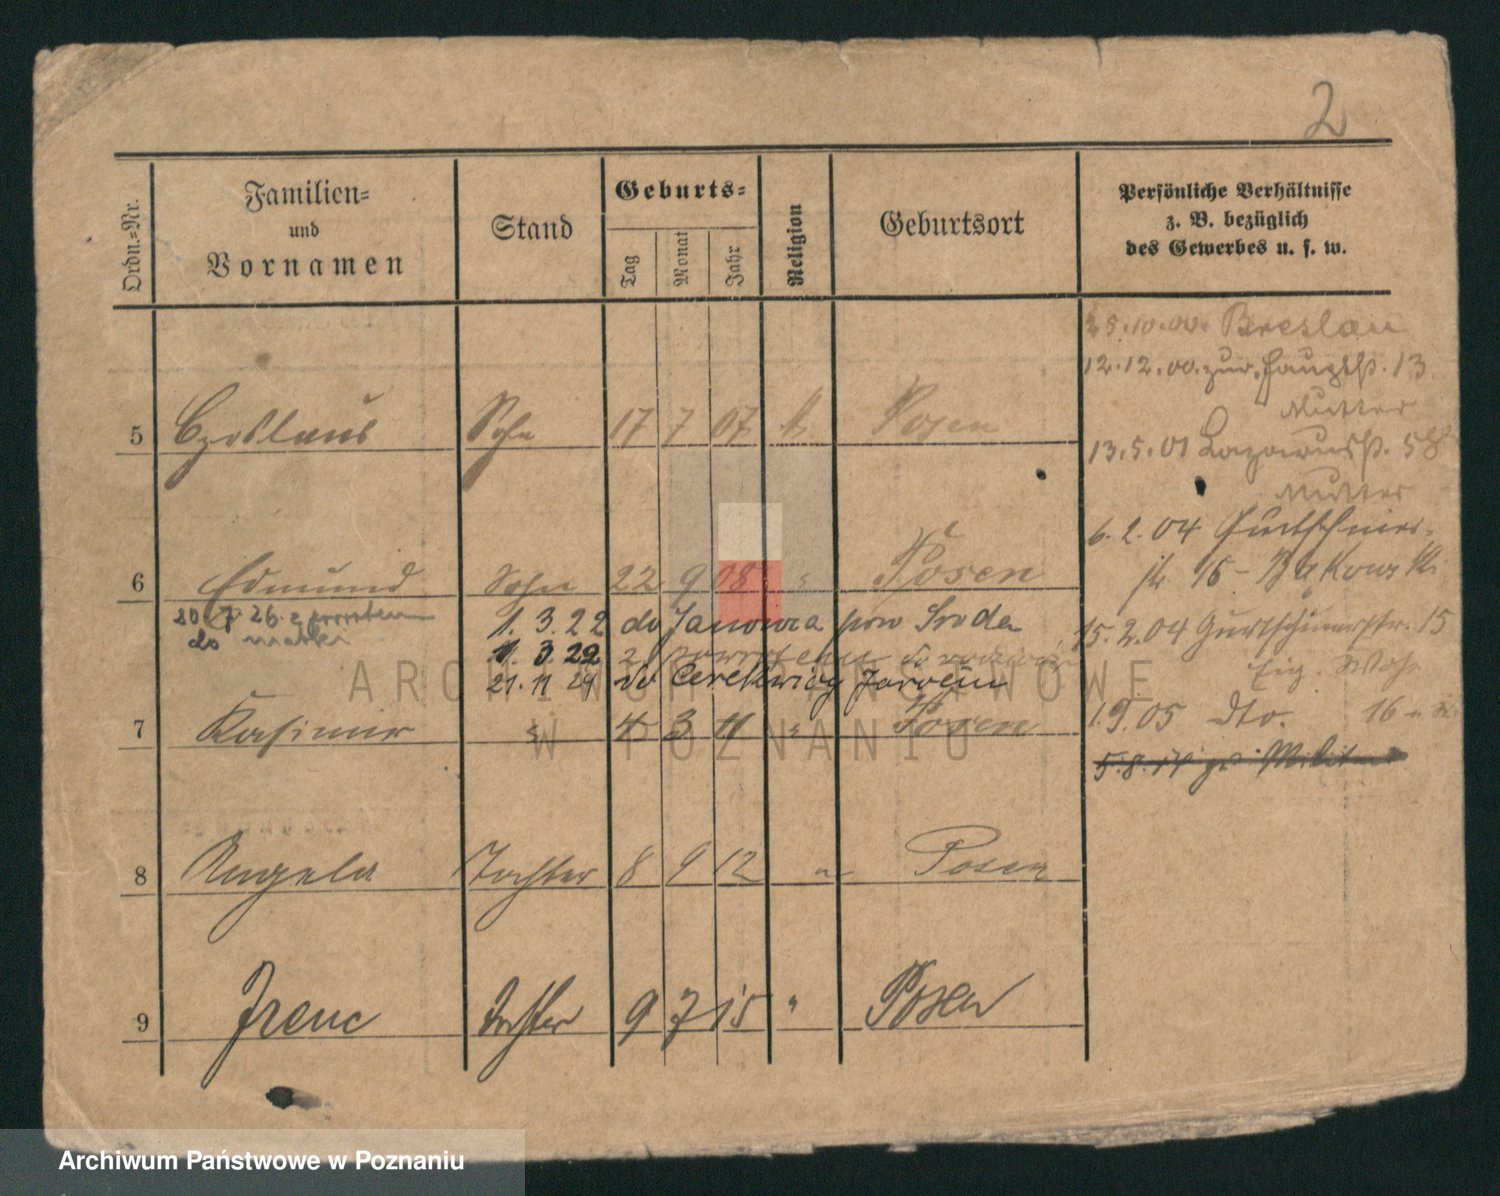 2
Ordn.=Nr.
Familien=
und
Vornamen
Stand
Geburts=
Tag
Monat
Jahr
Religion
Geburtsort
Persönliche Verhältnisse
z. B. bezüglich
des Gewerbes u. s. w.
25.10.00. Breslau
12.12.00. zur. Hauptst. 13
Mutter
5 Czeslaus Sohn 17 7 07 k. Posen
13.5.01 Lazarusst. 58
Mutter
6.2.04 Gurtschiner-
str. 15 -
6 Edmund Sohn 22 9 08 " Posen
20 7 26 z powrotem
do matki
1. 3. 22 do Janowa pow Środa
1. 3. 22 z powrotem do
21. 11 24 do Cerekwicy Jarocin
15.2.04 Gurtschinerstr. 15
Eig. Wohn
7 Kasimir " 4 3 11 " Posen
1.9.05 dto. 16
5.8.14 zu Militär
8 Angela Tochter 8 9 12 " Posen
9 Irene Tochter 9 7 15 " Posen
ARCHIWUM PAŃSTWOWE
W POZNANIU
Archiwum Państwowe w Poznaniu